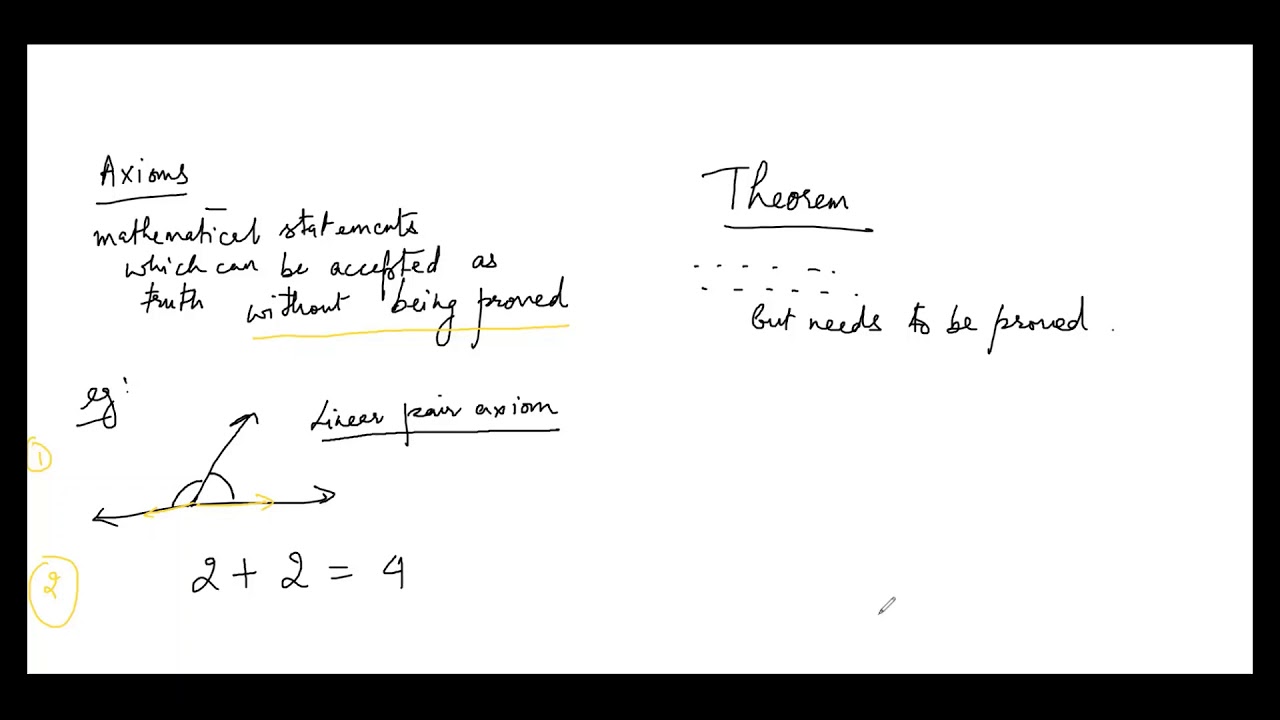 Axioms
mathematical statements
which can be accepted as
truth without being proved
eg:
Linear pair axiom
1
2 + 2 = 4
2
Theorem
- - - - -.
- - - - - .
but needs to be proved.